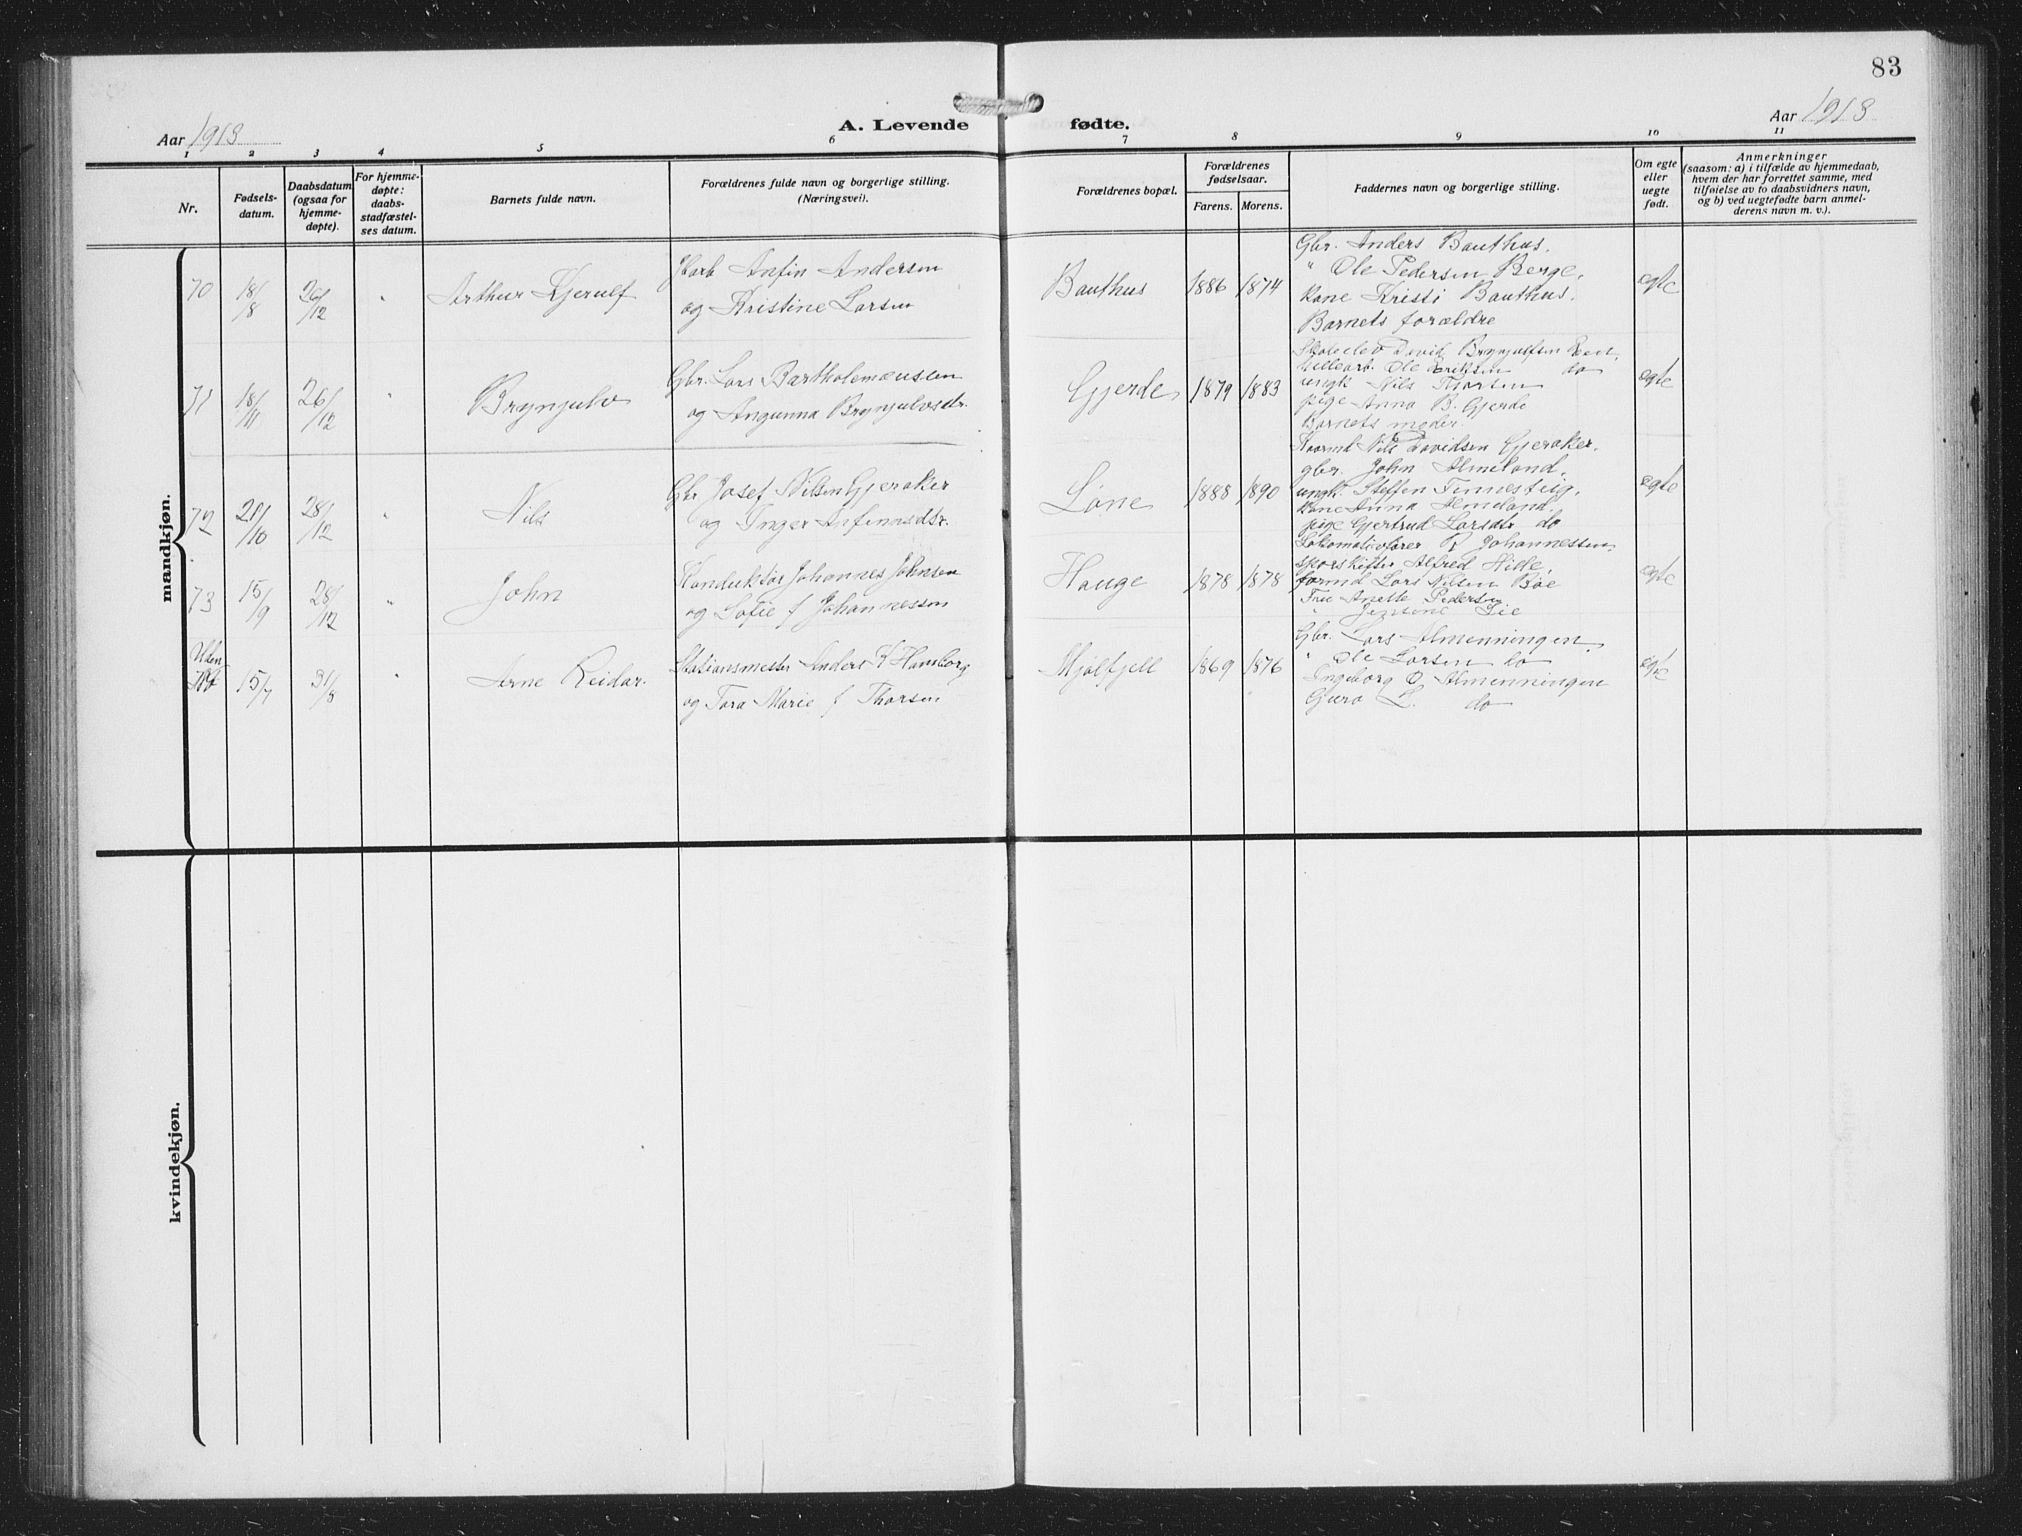 83
Aar 1913
A. Levende fødte.
Aar 1913
1 2 3 4 5 6 7 8 9 10 11
Nr.
Fødsels-
datum.
Daabsdatum
(ogsaa for
hjemme-
døpte).
For hjemme-
døpte:
daabs-
stadfæstel-
ses datum.
Barnets fulde navn.
Forældrenes fulde navn og borgerlige stilling.
(Næringsvei).
Forældrenes bopæl.
Forældrenes
fødselsaar.
Farens. Morens.
Faddernes navn og borgerlige stilling.
Om egte
eller
uegte
født.
Anmerkninger
(saasom: a) i tilfælde av hjemmedaab,
hvem der har forrettet samme, med
tilføielse av to daabsvidners navn,
og b) ved uegtefødte barn anmel-
derens navn m. v.).
mandkjøn.
70 18/8 26/12 " Arthur Kjerulf
Anfin Andersen
og Kristine Larsen
Bauthus 1886 1874
Gbr. Anders Bauthus.
" Ole Pedersen Berge.
Kone Kristi Bauthus.
Barnets forældre
egte
71 18/11 26/12 " Brynjulv
Gbr. Lars Bartholemæussen
og Angunna Brynjulvsdr.
Gjerde 1879 1883
David Brynjulfsen
Ole Eriksen do
ungk Nils
pige Anna B. Gjerde
Barnets moder.
egte
72 21/10 28/12 " Nils
Gbr Josef Nilsen Gjeraker
og Inger Anfinnsdtr.
Løne 1888 1890
Nils Davidsen Gjeraker.
gbr. John Almeland.
ungk. Steffen Finnesteig.
Kone Anna Almeland.
pige Gjertrud Larsdtr do
egte
73 15/9 28/12 " John
Konduktør Johannes Johnsen
og Sofie f Johannessen
Hauge 1878 1878
Lokomotivfører R. Johannessen.
Sporskifter Alfred Hilde.
formd Lars Nilsen Bøe
Fru Anette Pedersen
" Jensine Lie
egte
Uden
Nr 15/7 31/8 " Arne Reidar.
Stationsmester Anders K Hamborg
og Tora Marie f Thorsen
Mjølfjell 1869 1876
Gbr. Lars Almenningen.
" Ole Larsen do
Ingeborg O. Almenningen
Gjuro L. do
egte
kvindekjøn.